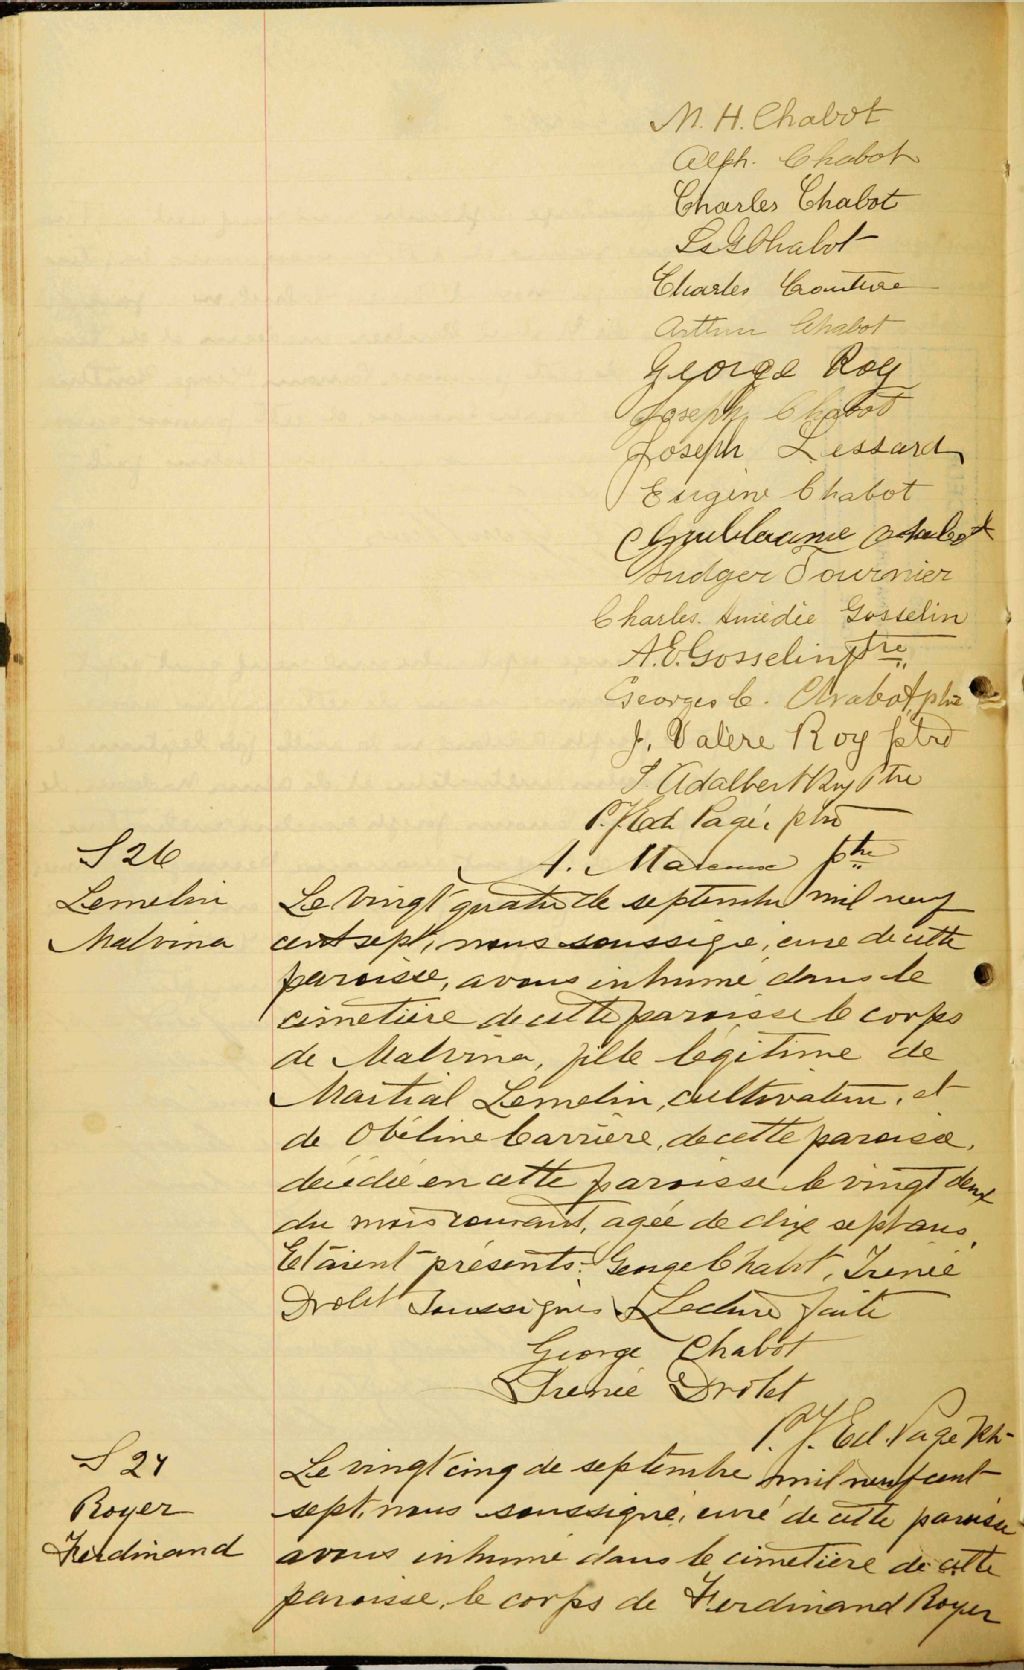 M. H. Chabot
Alph. Chabot
Charles Chabot
Ls G Chabot
Charles Couture
Arthur Chabot
George Roy
Joseph Chabot
Joseph Lessard
Eugène Chabot
Guillaume Chabot
Ludger Fournier
Charles Amédée Gosselin
A. E. Gosselin ptre
Georges C. Chabot, ptre
J. Valère Roy ptre
J. Adalbert Roy Ptre
P. J. Ed. Pagé, ptre
A. ptre
S 26
Lemelin
Malvina
Le vingt quatre de septembre mil neuf
cent sept, nous soussigné, curé de cette
paroisse, avons inhumé dans le
cimetière de cette paroisse le corps
de Malvina, fille légitime de
Martial Lemelin, cultivateur, et
de Obéline Carrière, de cette paroisse,
décédée en cette paroisse le vingt deux
du mois courant, agée de dix sept ans.
Etaient présents: George Chabot, Irenée
Drolet soussignés. Lecture faite
George Chabot
Irenée Drolet
P. J. Ed. Pagé Ptr
S 27
Royer
Ferdinand
Le vingt cinq de septembre mil neuf cent
sept, nous soussigné, curé de cette paroisse
avons inhumé dans le cimetière de cette
paroisse, le corps de Ferdinand Royer